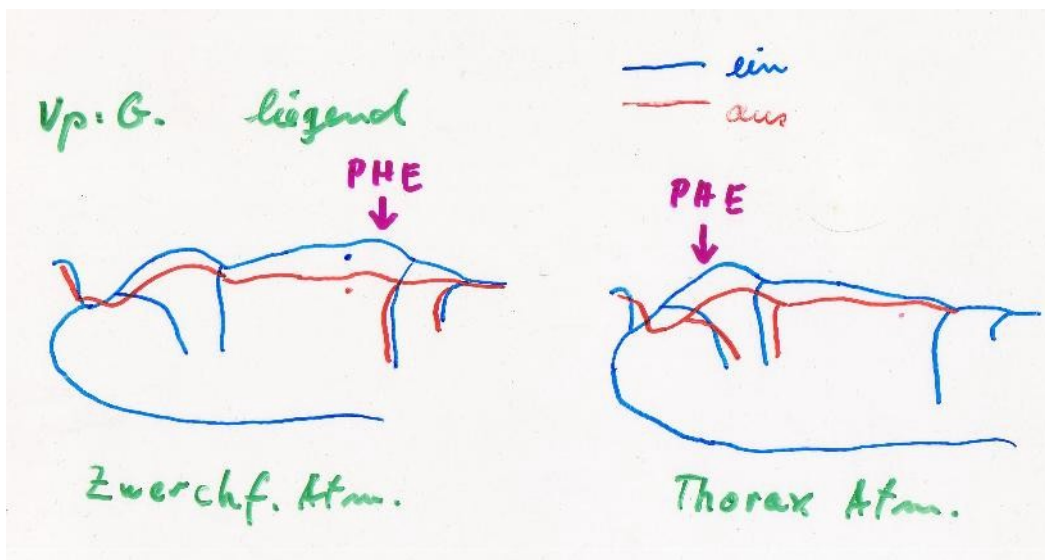 Vp: G. liegend
ein
aus
PHE
PHE
Zwerchf. Atm.
Thorax Atm.